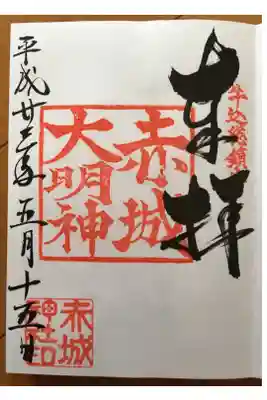 牛込總鎮
奉拝
赤城
大明神
赤城
神社
平成廿二年五月十五日